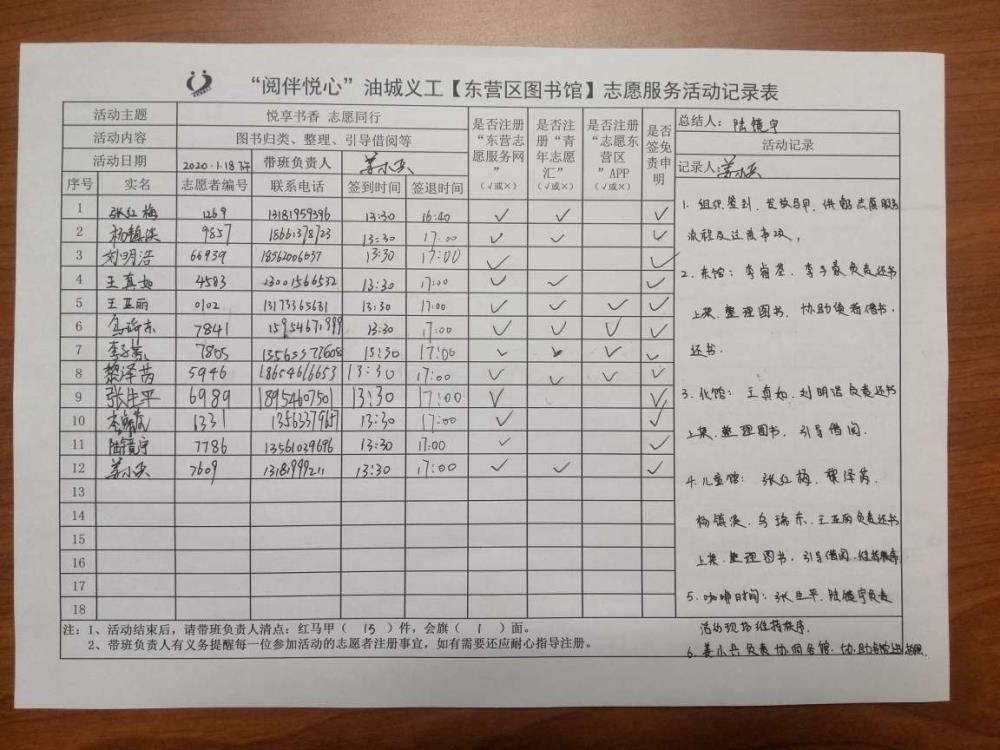 “阅伴悦心”油城义工【东营区图书馆】志愿服务活动记录表
活动主题 悦享书香 志愿同行 是否注册“东营志愿服务网” (√或×) 是否注册“青年志愿汇” (√或×) 是否注册“志愿东营区”APP (√或×) 是否签免责申明 总结人: 陆镜宇
活动内容 图书归类、整理、引导借阅等 活动记录
活动日期 2020.1.18 带班负责人 姜小兵 记录人: 姜小兵
序号 实名 志愿者编号 联系电话 签到时间 签退时间
1 张红梅 1269 13181959396 13:30 16:40 √ √ √
2 杨镇滨 9857 18661378723 13:30 17:00 √ √ √
3 刘明浩 66939 18562006657 13:30 17:00 √ √
4 王真如 4583 13001566532 13:30 17:00 √ √ √
5 王亚丽 0102 13173365631 13:30 17:00 √ √ √ √
6 乌瑞东 7841 15954671999 13:30 17:00 √ √ √ √
7 李子豪 7805 17:00 √ √ √
8 黎泽芮 5946 18654616653 13:30 17:00 √ √ √ √
9 张生平 6989 18954607501 13:30 17:00 √ √
10 1331 13563379657 13:30 17:00 √ √
11 陆镜宇 7786 13561039696 13:30 17:00 √ √
12 姜小兵 7609 13181999211 13:30 17:00 √ √ √
13
14
15
16
17
18
1. 组织签到、发放马甲、
流程及注意事项,
2. 东馆: 李子豪负责还书
上架、整理图书、协助读者借书、
还书.
3. 北馆: 王真如、刘明浩负责还书
上架、整理图书、引导借阅.
4. 儿童馆: 张红梅、黎泽芮、
杨镇滨、乌瑞东、王亚丽负责还书
上架、整理图书、引导借阅、维持秩序
5. 咖啡时间: 张生平、陆镜宇负责
活动现场维持秩序.
6. 姜小兵负责协调各馆、
注: 1、活动结束后,请带班负责人清点:红马甲( 15 )件,会旗( 1 )面。
2、带班负责人有义务提醒每一位参加活动的志愿者注册事宜,如有需要还应耐心指导注册。